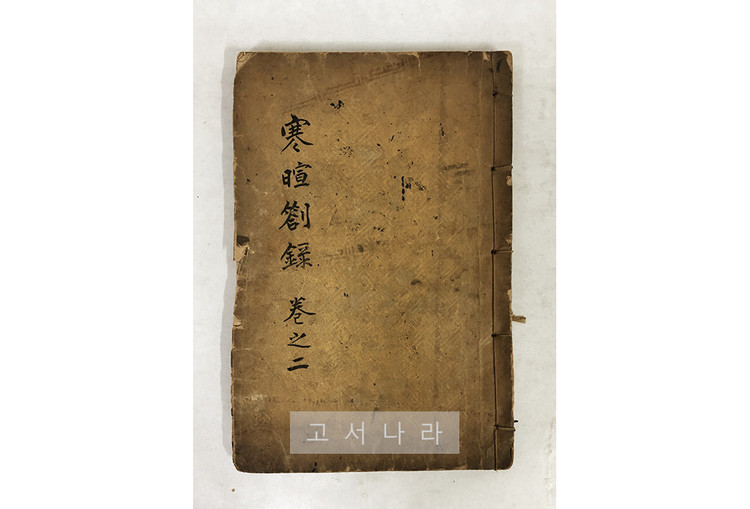 寒暄劄錄 卷之二
고서나라